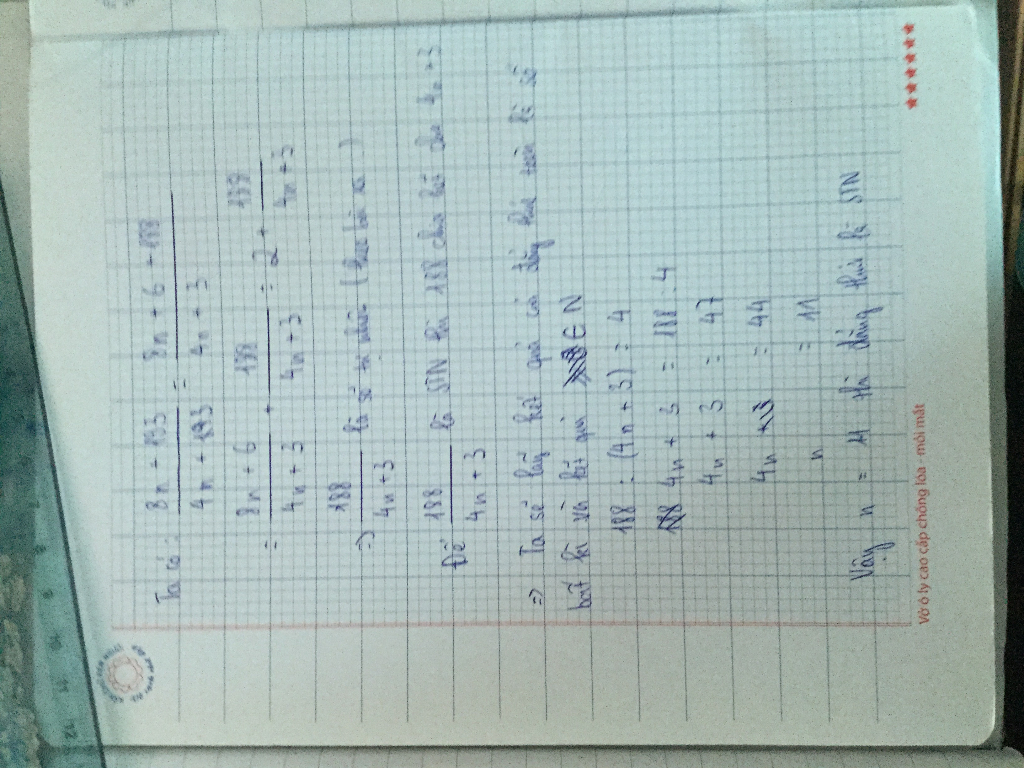 Ta có: 8n + 193 / 4n + 193 = 8n + 6 + 188 / 4n + 3
= 8n + 6 / 4n + 3 + 188 / 4n + 3 = 2 + 188 / 4n + 3
=> 188 / 4n + 3 là số tự nhiên
Để 188 / 4n + 3 là STN thì 188 chia hết cho 4n + 3
=> Ta sẽ lấy kết quả của đẳng thức trên là số
bất kì và kết quả ∈ N
188 : (4n + 3) = 4
4n + 3 = 188 : 4
4n + 3 = 47
4n = 44
n = 11
Vậy n = 11 thì đẳng thức là STN
Vở ô ly cao cấp chống lóa - mỏi mắt